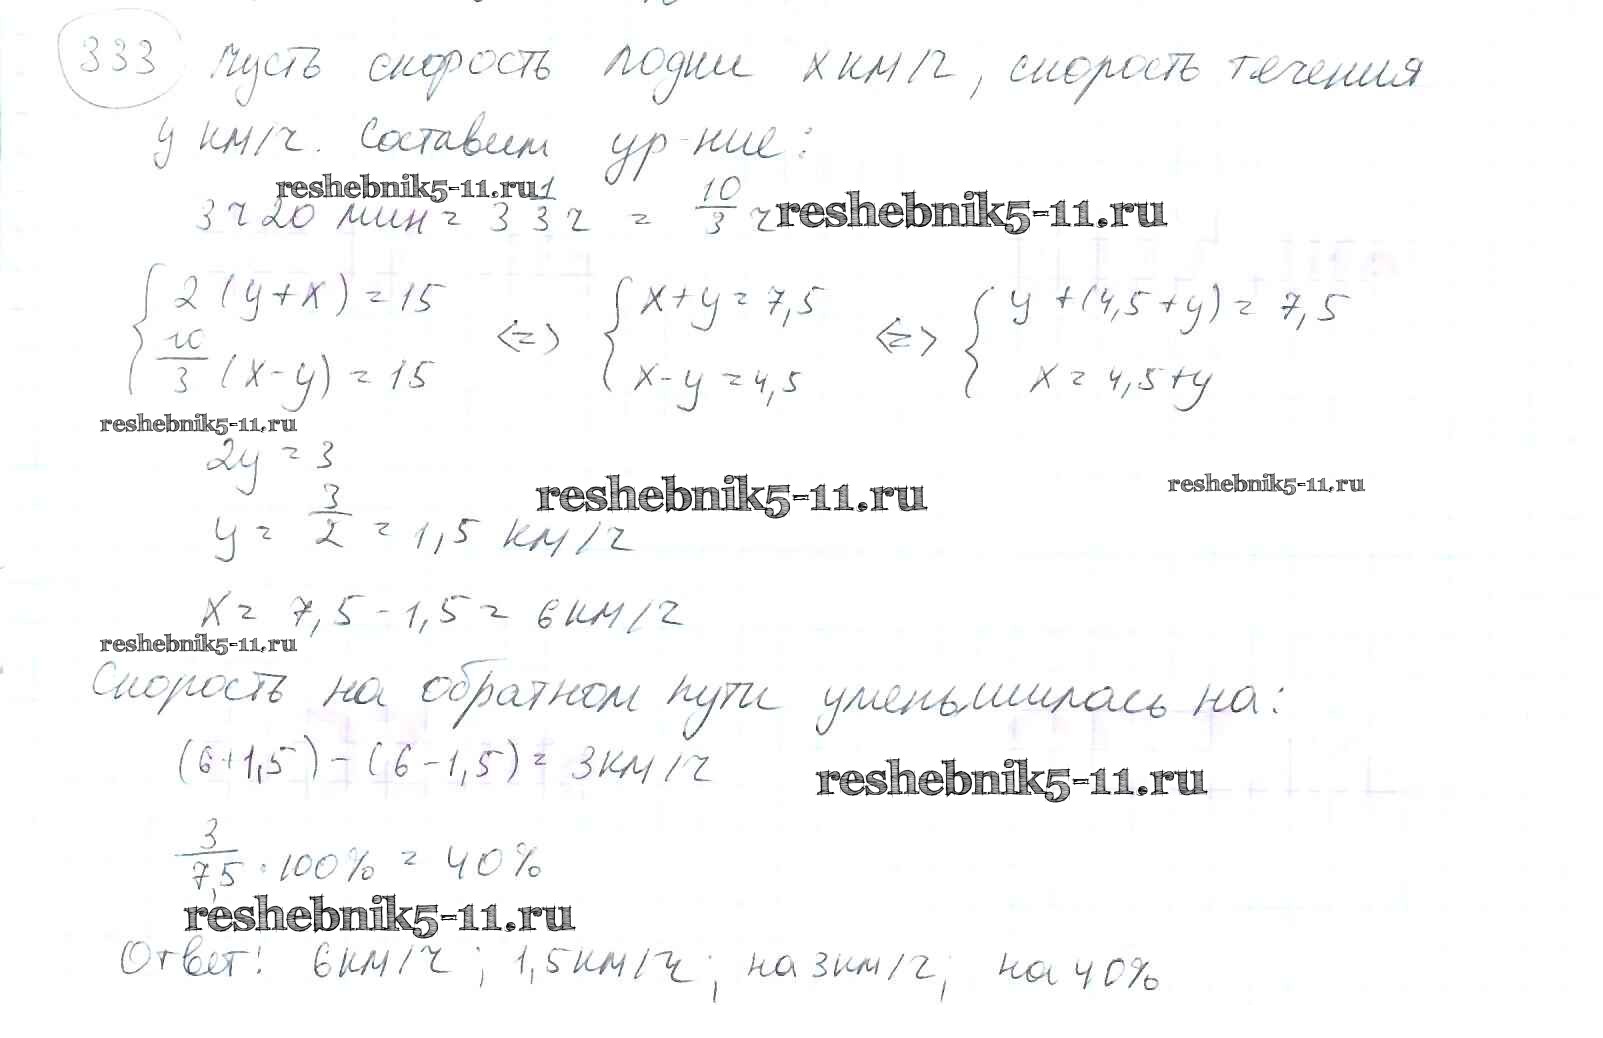 333 Пусть скорость лодки x км/ч, скорость течения
y км/ч. Составим ур-ние:
reshebnik5-11.ru
3ч 20 мин = 3 1/3 ч = 10/3 ч reshebnik5-11.ru
{ 2(y+x) = 15 <=> { x+y = 7,5 <=> { y+(4,5+y) = 7,5
10/3 (x-y) = 15 x-y = 4,5 x = 4,5+y
reshebnik5-11.ru
2y = 3
reshebnik5-11.ru reshebnik5-11.ru
y = 3/2 = 1,5 км/ч
x = 7,5 - 1,5 = 6 км/ч
reshebnik5-11.ru
Скорость на обратном пути уменьшилась на:
(6+1,5) - (6-1,5) = 3 км/ч
reshebnik5-11.ru
3/7,5 · 100% = 40%
reshebnik5-11.ru
Ответ: 6 км/ч; 1,5 км/ч; на 3 км/ч; на 40%